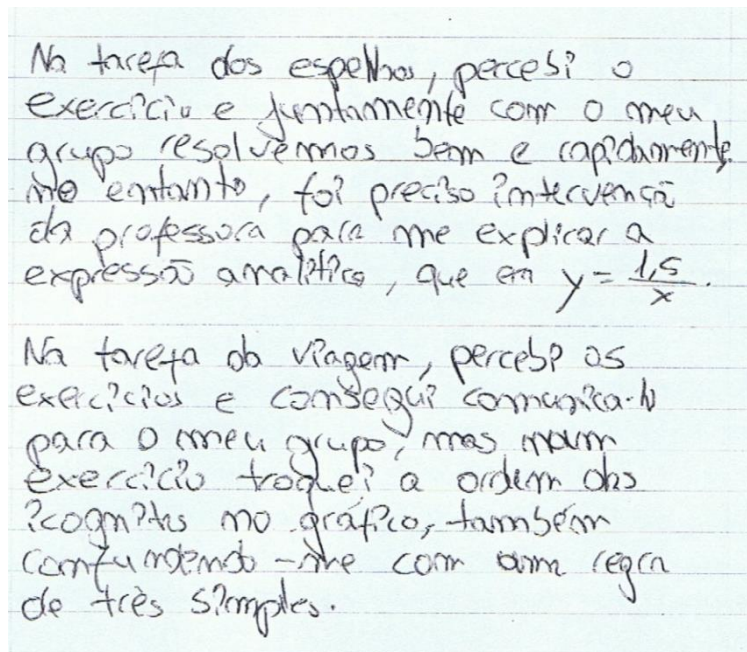 Na tarefa dos espelhos, percebi o
exercício e juntamente com o meu
grupo resolvemos bem e rapidamente.
no entanto, foi preciso intervençã
da professora para me explicar a
expressão analitica, que era y = 1,5/x.
Na tarefa da viagem, percebi os
exercicios e consegui comunica-lo
para o meu grupo, mas num
exercicio troquei a ordem das
icognitas no gráfico, também
confundendo-me com uma regra
de três simples.